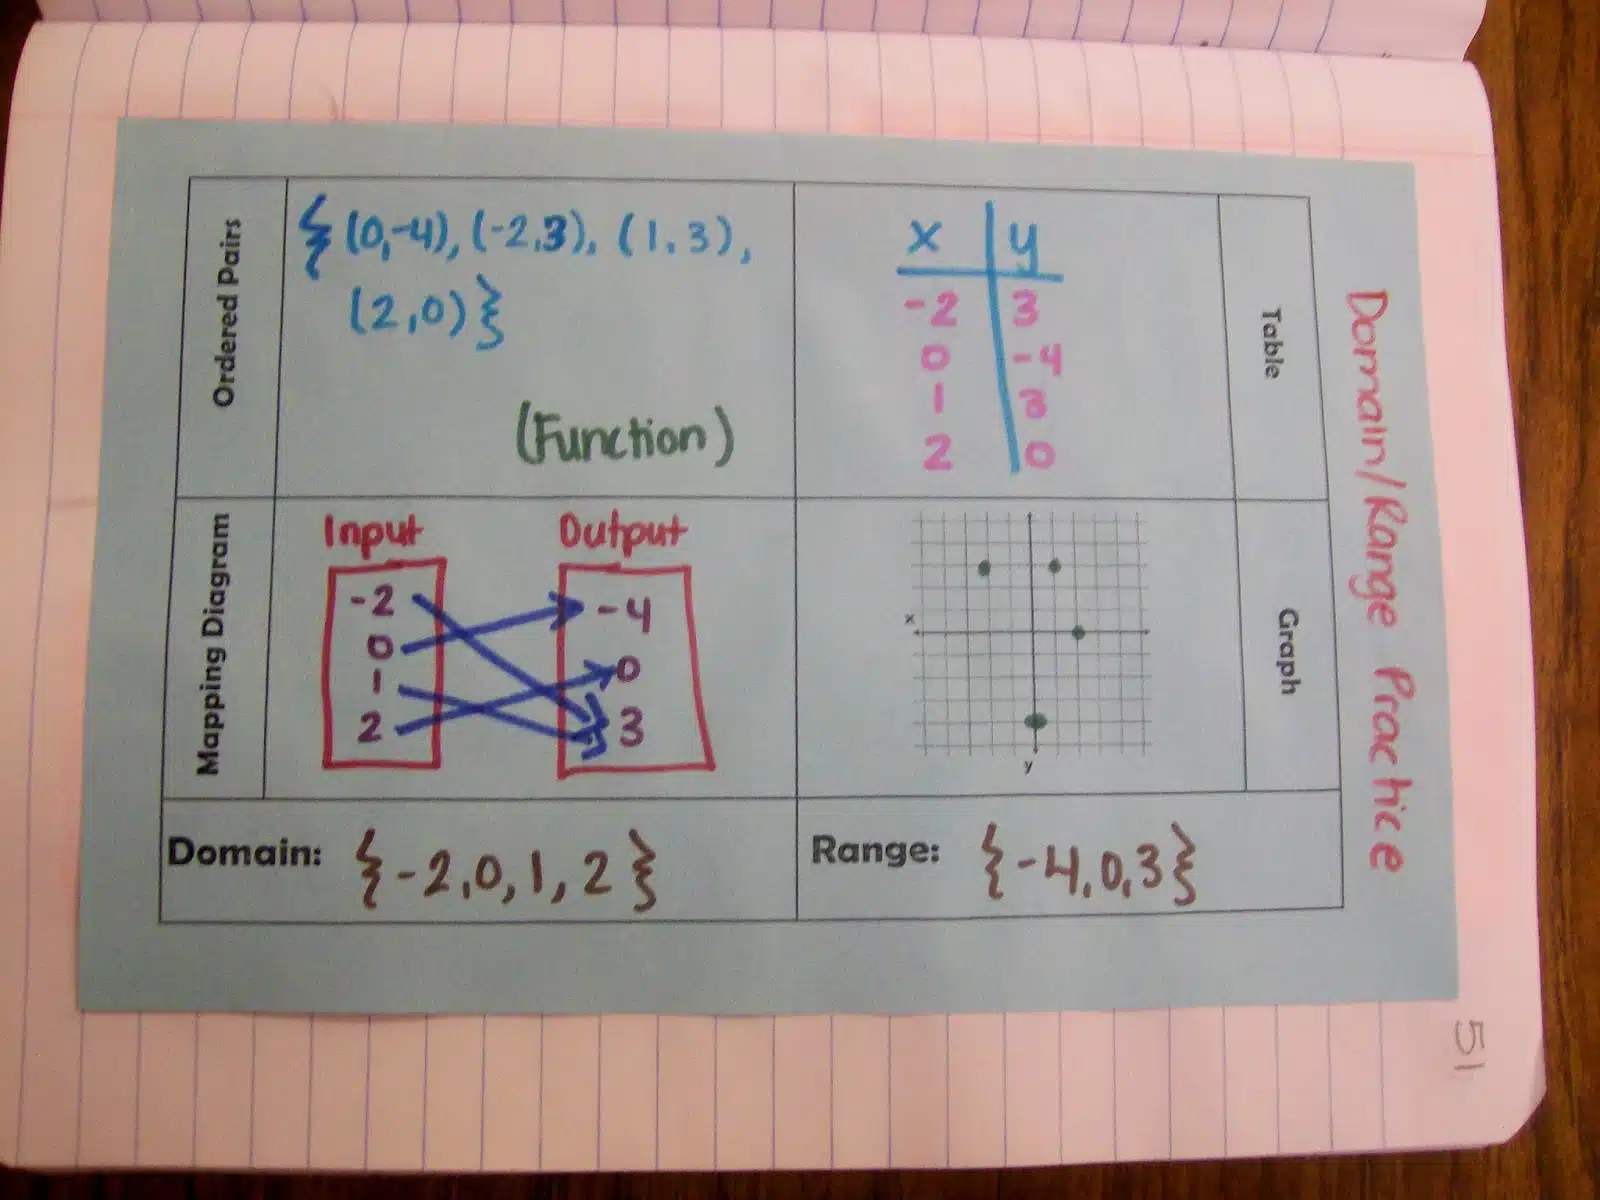 Domain/Range Practice
51
Ordered Pairs
{(0,-4), (-2,3), (1,3),
(2,0)}
(Function)
Table
x y
-2 3
0 -4
1 3
2 0
Mapping Diagram
Input Output
-2 -4
0 0
1 3
2
Graph
x
y
Domain: {-2,0,1,2}
Range: {-4,0,3}